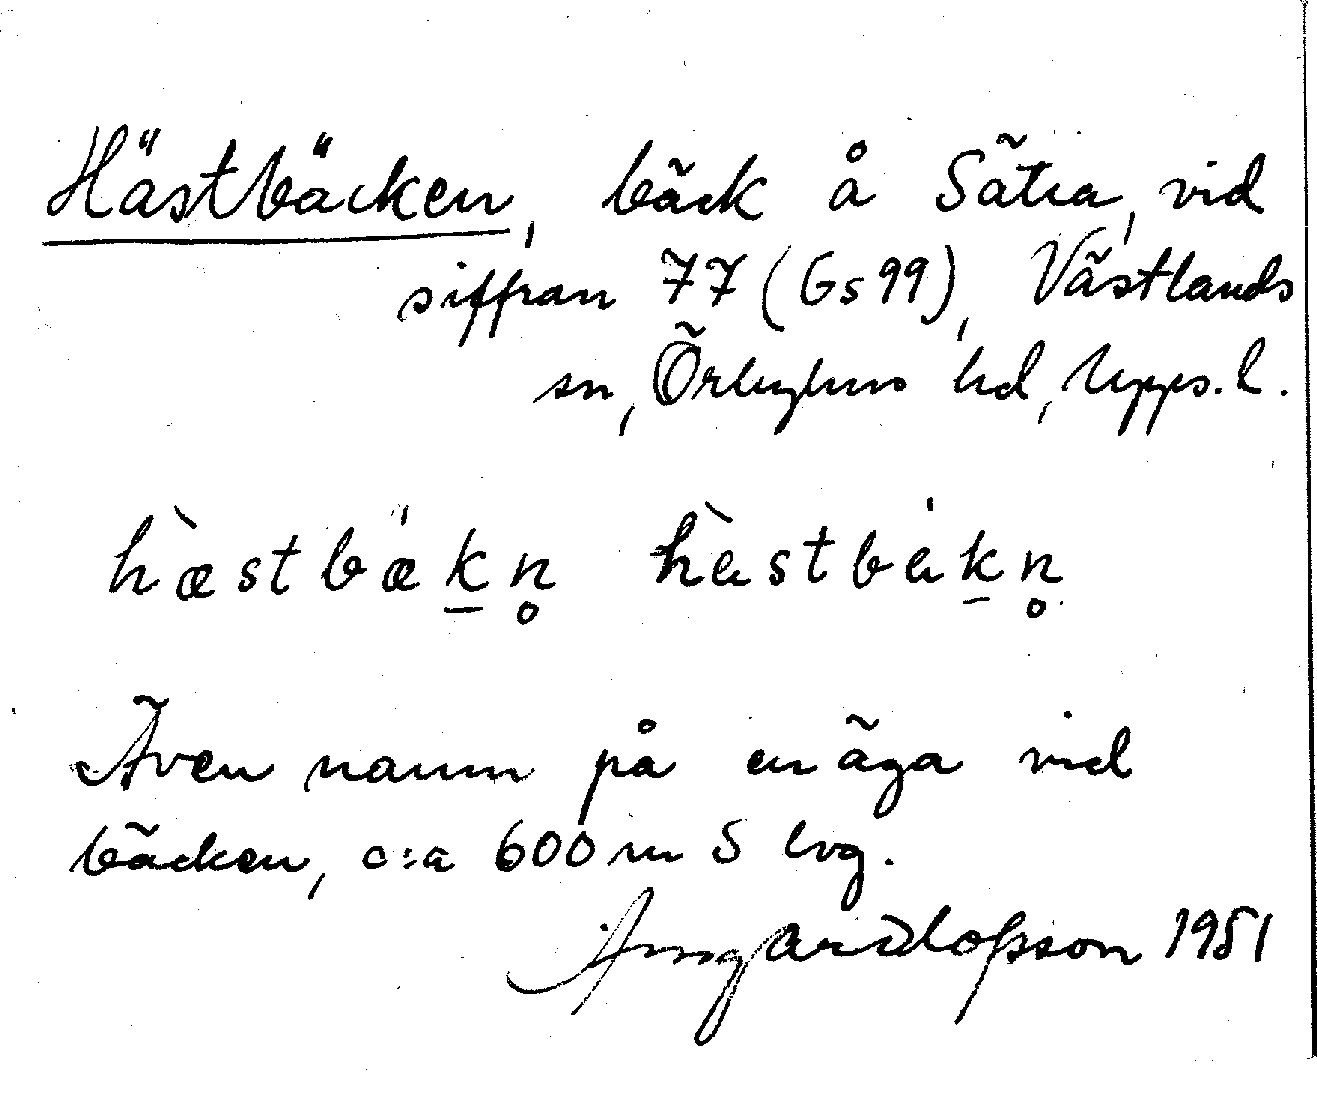 Hästbäcken, bäck å Sätra, vid
siffran 77 (Gs 99), Västlands
sn, Örbyhus hd, Upps. l.
hæ̀stbæ̍k̠n̥ hàstba̍k̠n̥
Även namn på en äga vid
bäcken, c:a 600 m S lvg.
1951